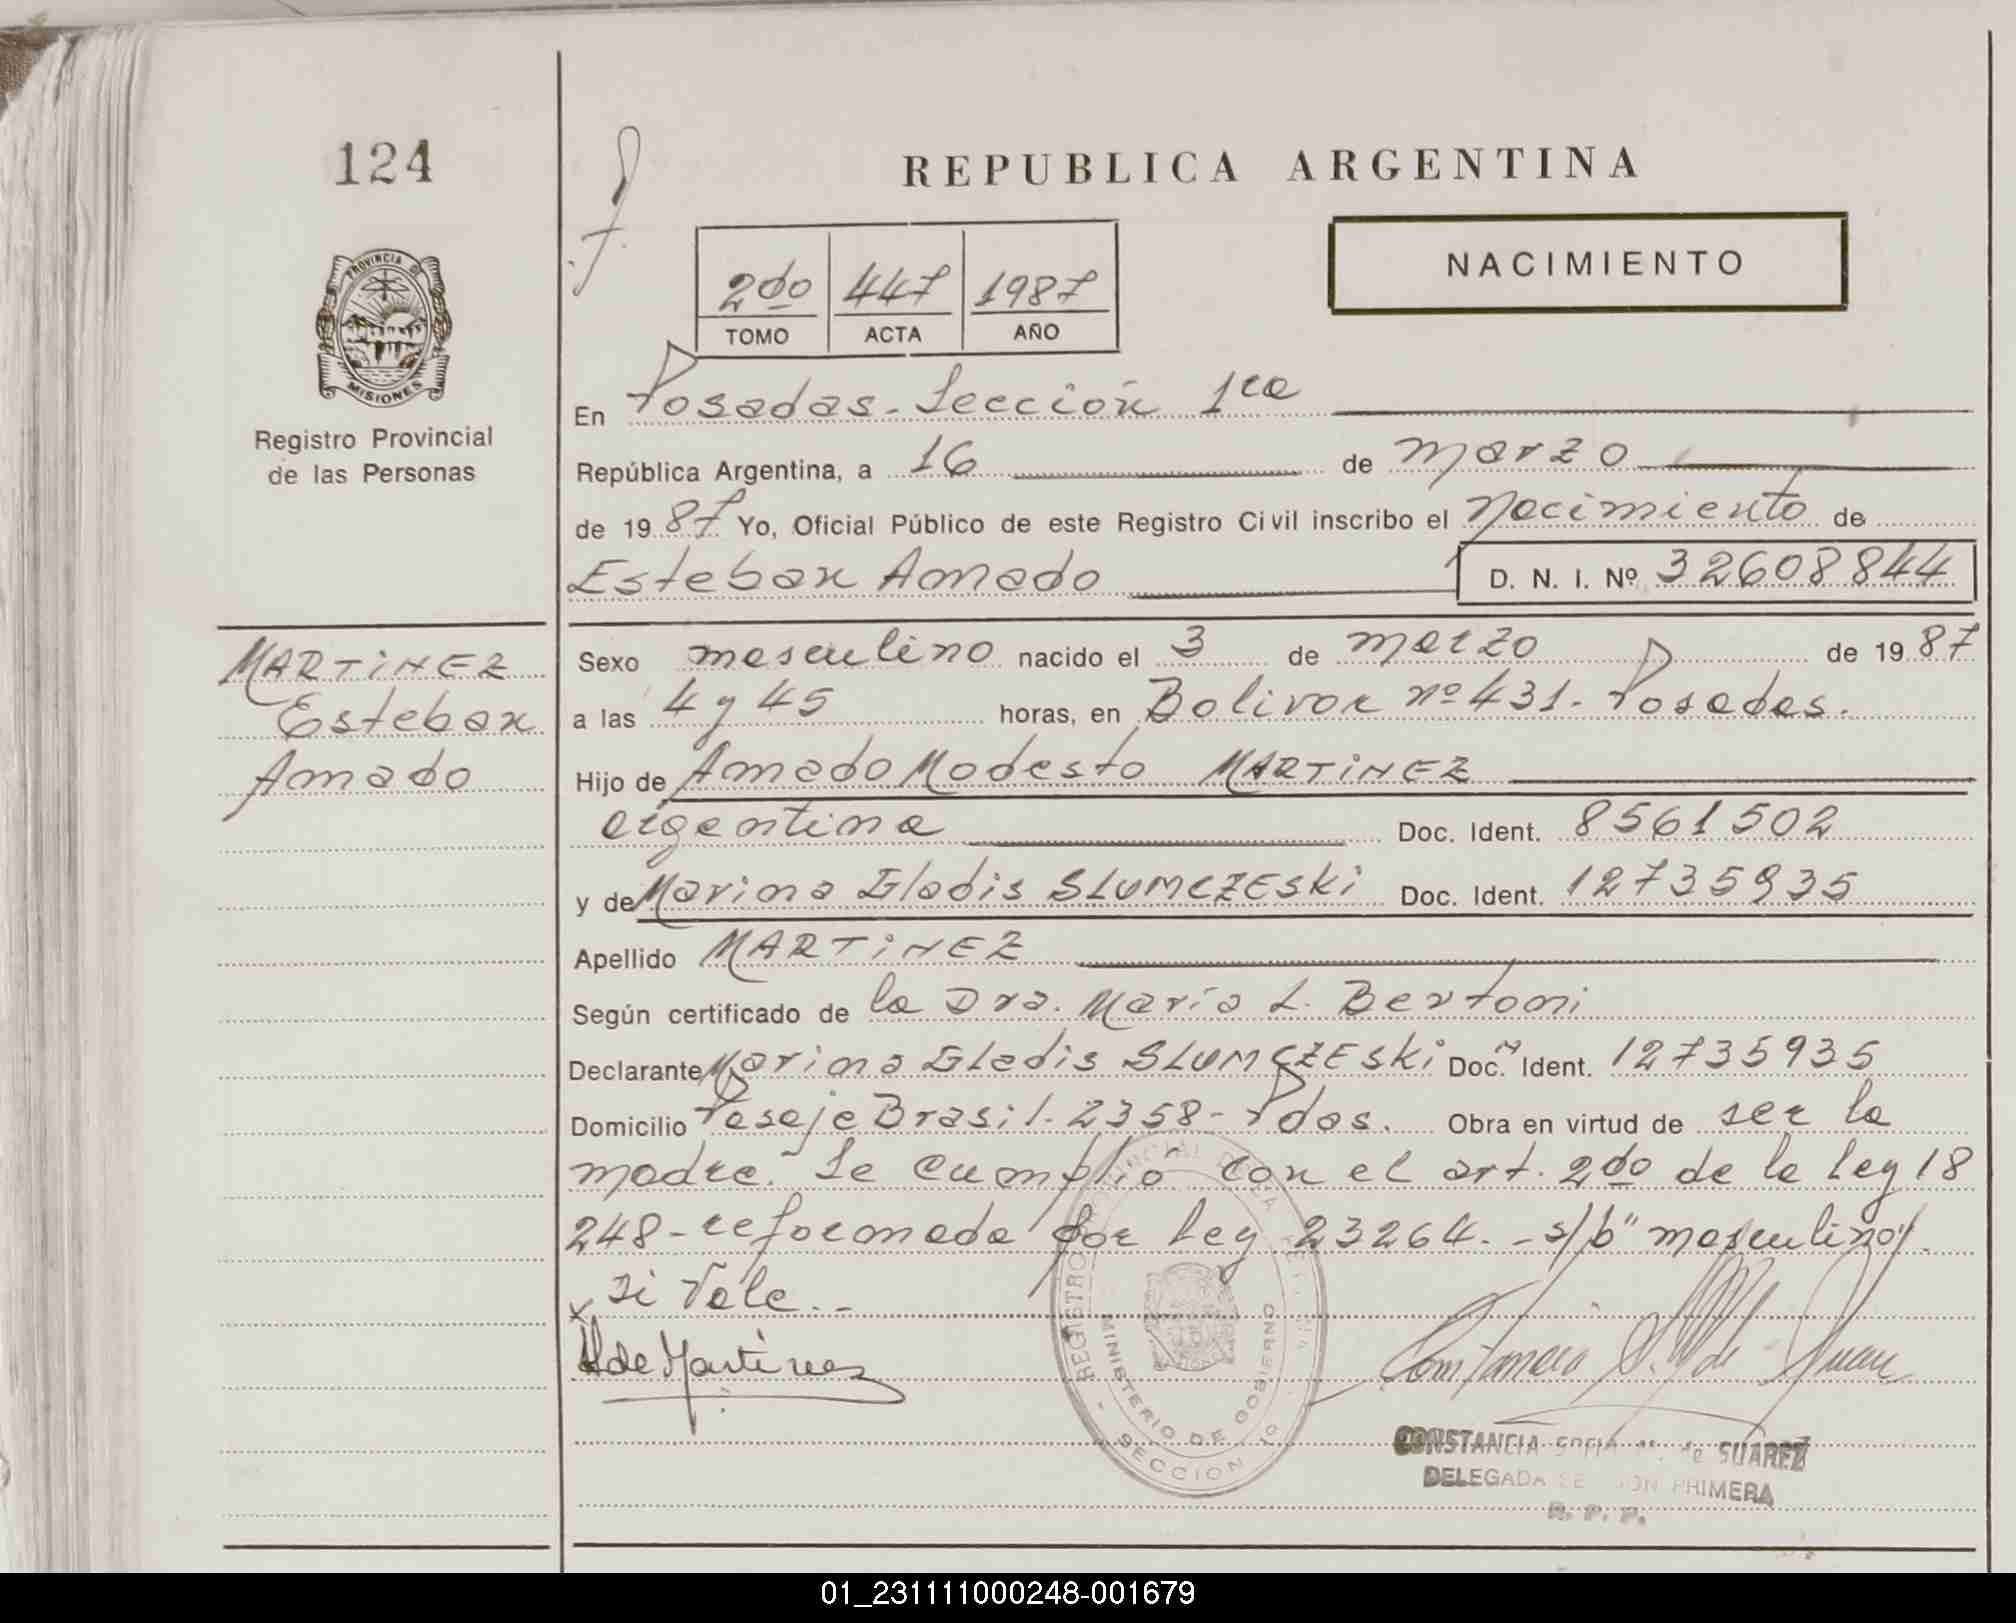 124
REPUBLICA ARGENTINA
PROVINCIA DE
MISIONES
Registro Provincial
de las Personas
2do 447 1987
TOMO ACTA AÑO
NACIMIENTO
En Posadas - Sección 1ra
República Argentina, a 16 de marzo
de 1987 Yo, Oficial Público de este Registro Civil inscribo el Nacimiento de
Esteban Amado D. N. I. Nº 32608844
MARTINEZ
Esteban
Amado
Sexo masculino nacido el 3 de marzo de 1987
a las 4 y 45 horas, en Bolivar nº 431. Posadas.
Hijo de Amado Modesto MARTINEZ
argentina Doc. Ident. 8561502
y de Marina Gladis SLUMCZESKi Doc. Ident. 12735935
Apellido MARTINEZ
Según certificado de la Dra. María L. Bertoni
Declarante Marina Gladis SLUMCZESKi Doc. Ident. 12735935
Domicilio Pasaje Brasil. 2358 - Pdas. Obra en virtud de ser la
madre. Se cumplió con el art. 2do de la ley 18
248 - reformada por ley 23264. - s/b "masculino"
Si Vale. -
x
de Martinez
REGISTRO PROVINCIAL DE LAS PERSONAS
MINISTERIO DE GOBIERNO
SECCION 1º
Constancia S. de Suarez
CONSTANCIA SOFIA de SUAREZ
DELEGADA SECCION PRIMERA
R. P. P.
01_231111000248-001679